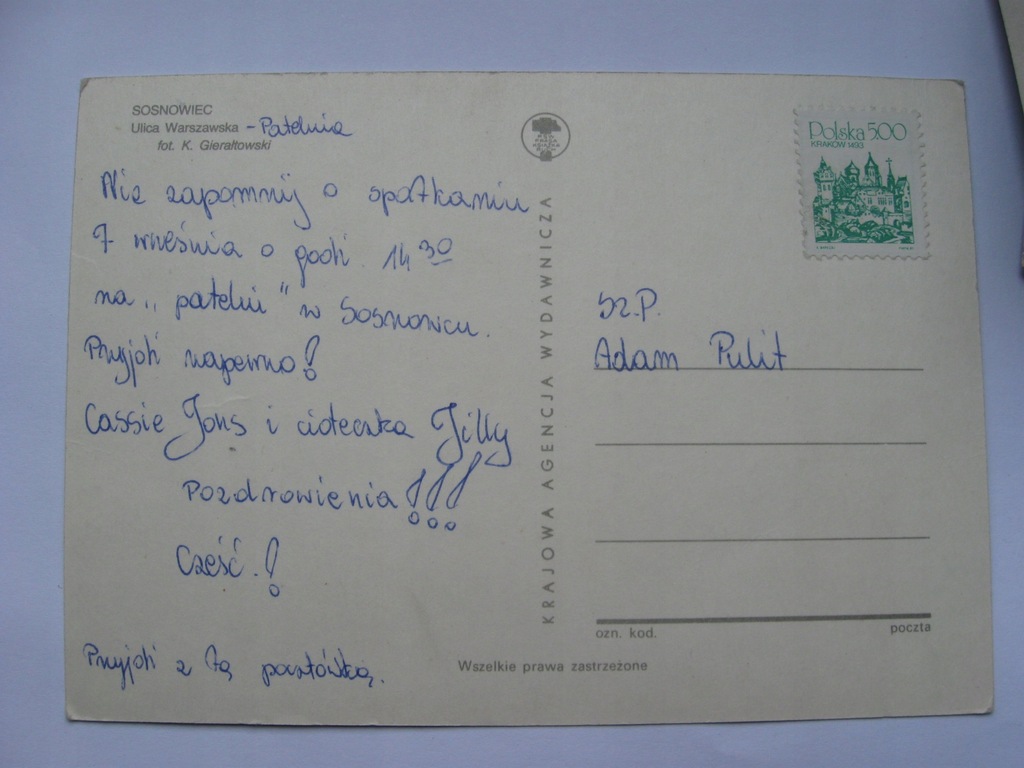 SOSNOWIEC
Ulica Warszawska - Patelnia
fot. K. Gierałtowski
Nie zapomnij o spotkaniu
7 września o godz. 14 30
na „patelni" w Sosnowcu.
Przyjdź napewno!
Cassie Jons i cioteczka Jilly
Pozdrowienia!!!
Cześć.!
Przyjdź z tą pocztówką.
KRAJOWA AGENCJA WYDAWNICZA
Polska 5.00
KRAKÓW 1493
Sz.P.
Adam Pulit
ozn. kod.
poczta
Wszelkie prawa zastrzeżone